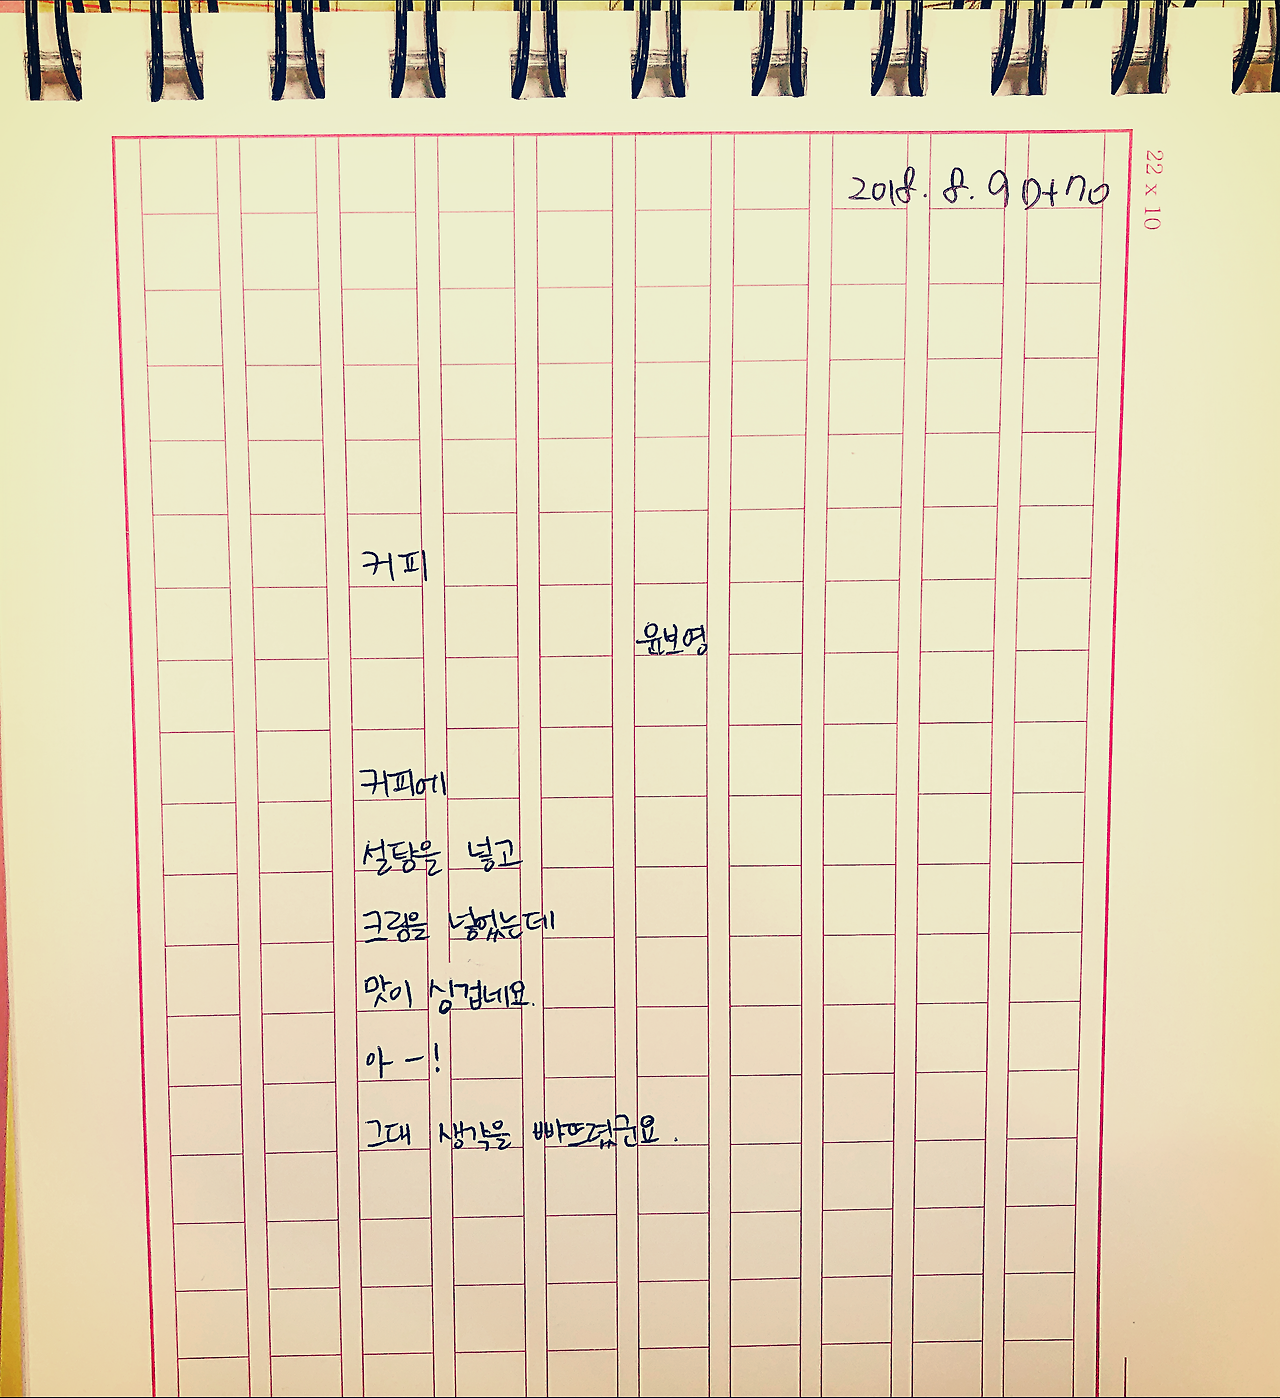 2018. 8. 9 D+70
22 x 10
커피
윤보영
커피에
설탕을 넣고
크림을 넣었는데
맛이 싱겁네요.
아 - !
그대 생각을 빠뜨렸군요.